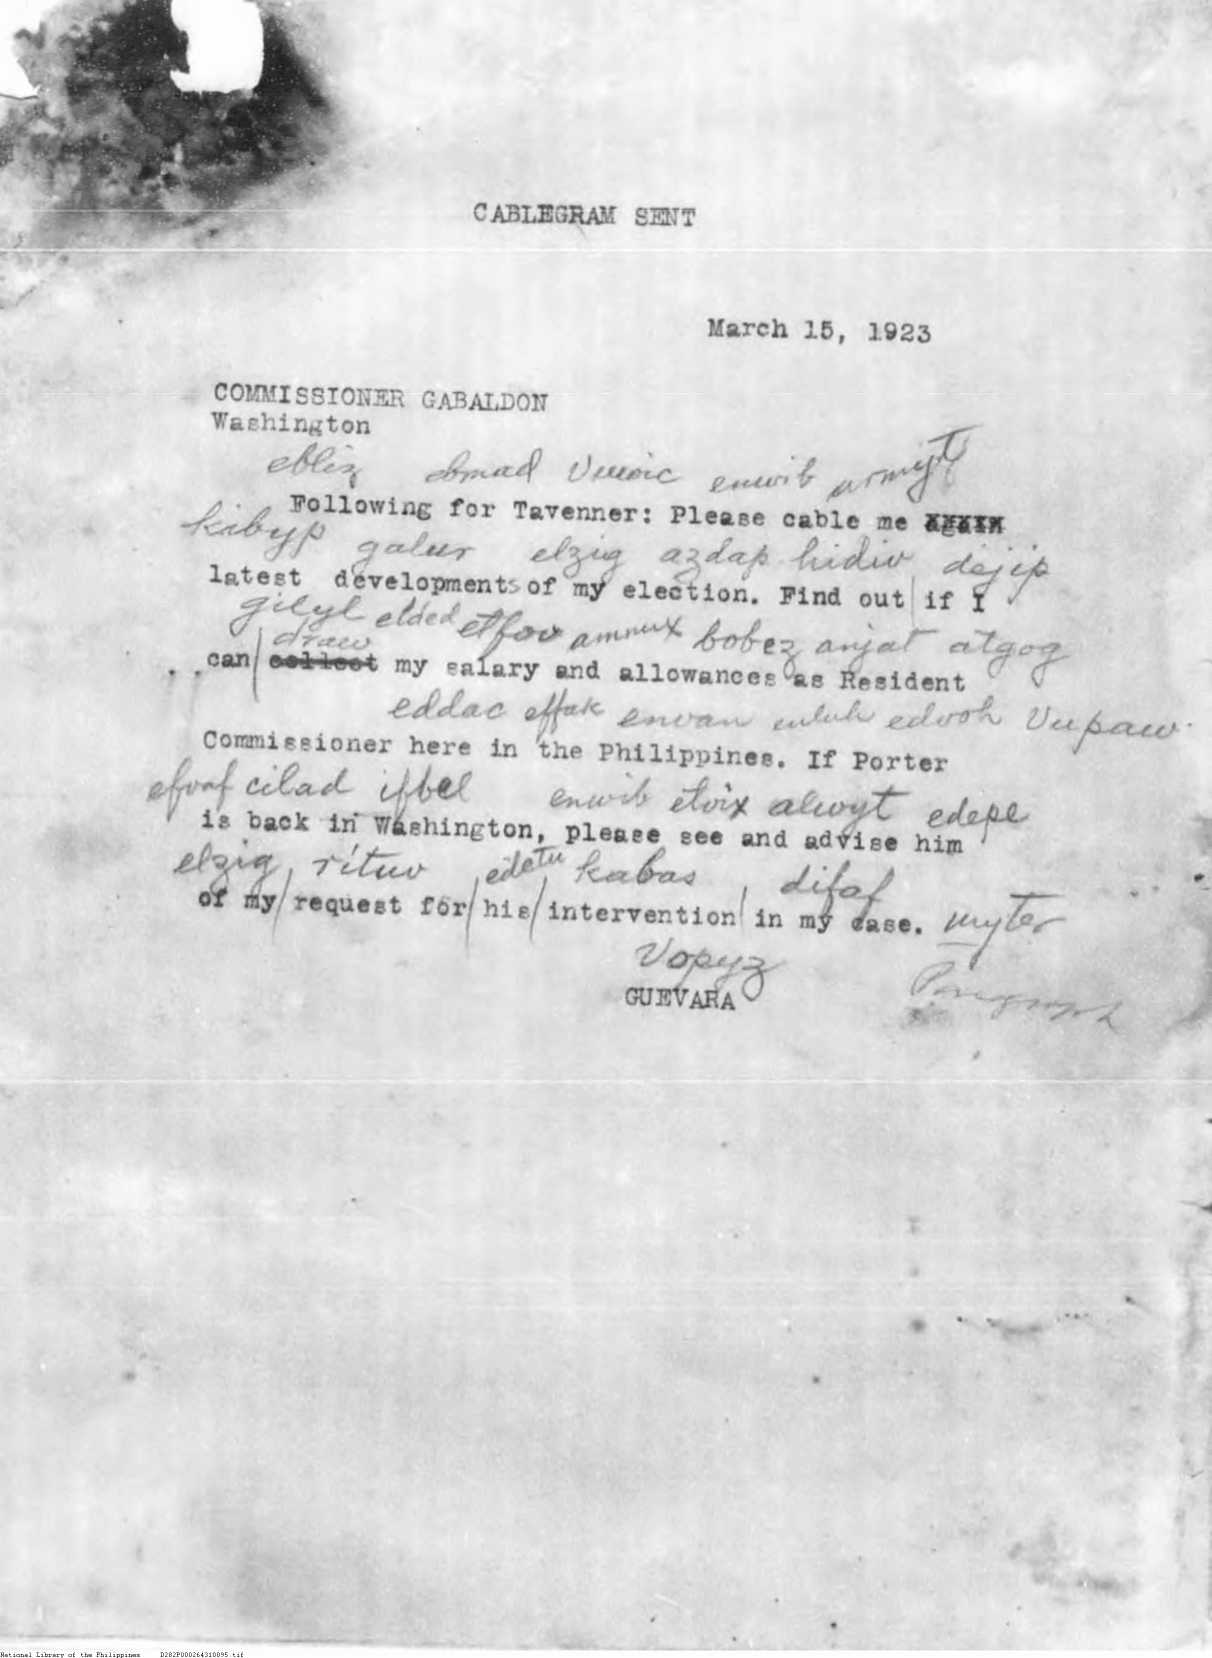 CABLEGRAM SENT
March 15, 1923
COMMISSIONER GABALDON
Washington
ebliz enwib
Following for Tavenner: Please cable me again
kibyp galur elzig azdap hidiv dejip
latest developments of my election. Find out if I
gilyl elded bobez anjat atgog
draw
can collect my salary and allowances as Resident
eddac effak envan edvoh
Commissioner here in the Philippines. If Porter
cilad ifbel enwib etvix alwyt edepe
is back in Washington, please see and advise him
elzig rituv kabas difaf
of my request for his intervention in my case. myter
Vopyz
GUEVARA Paragraph
National Library of the Philippines D282P000264310095.tif